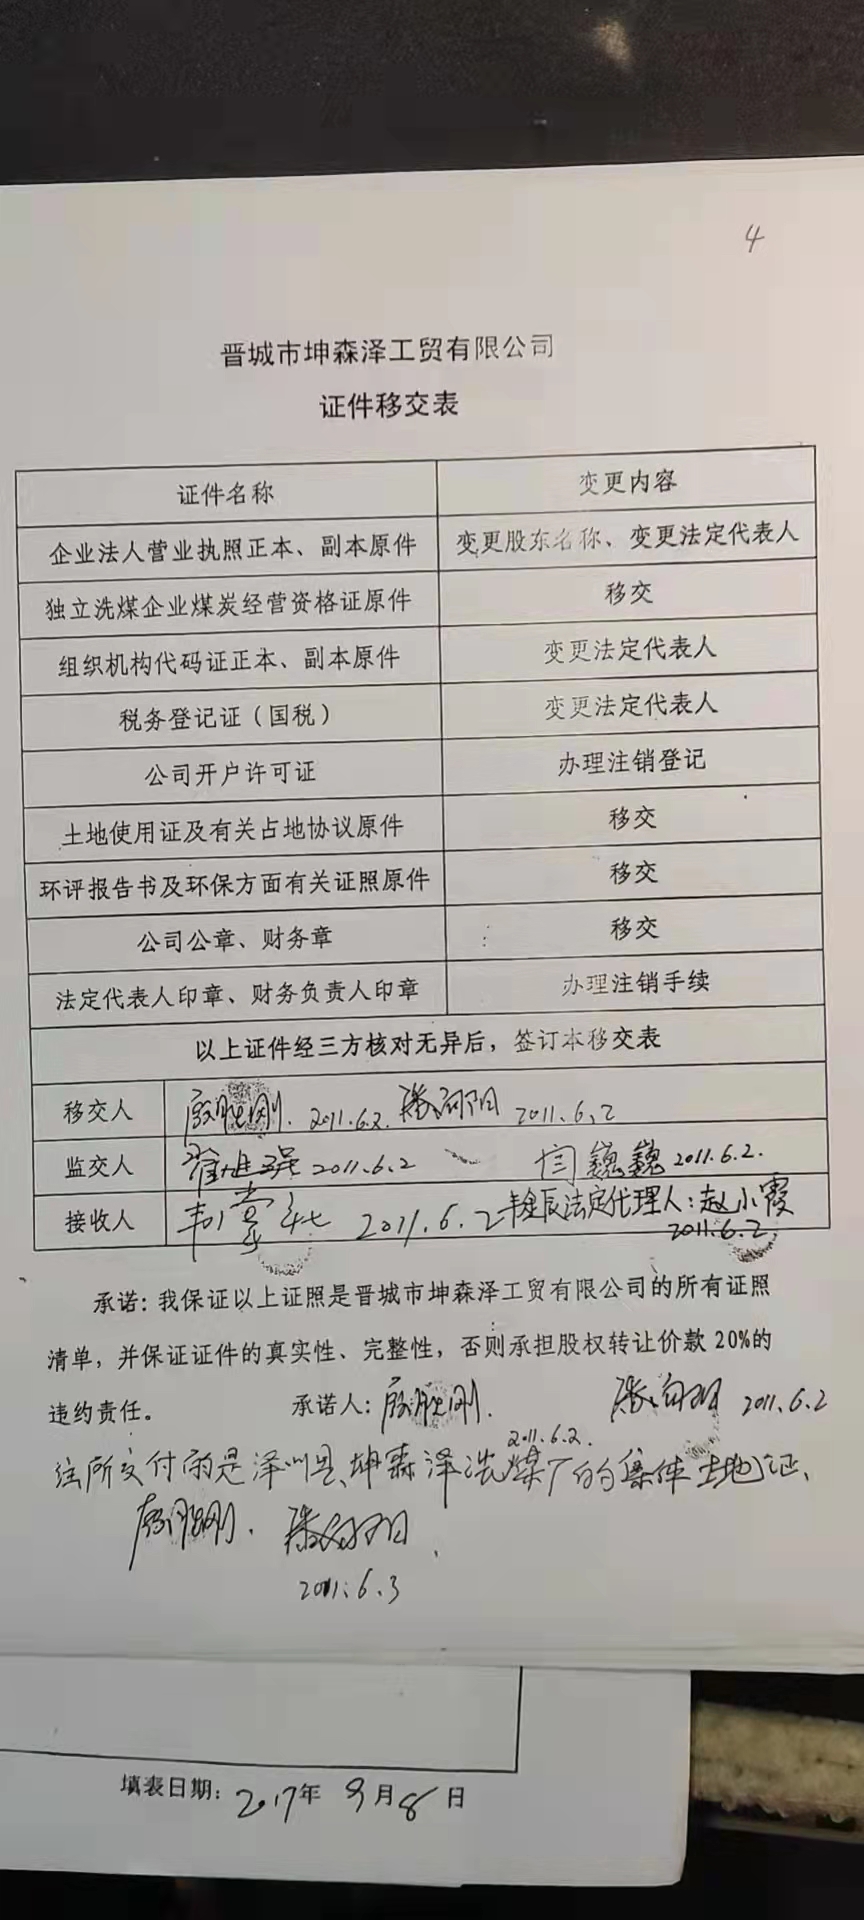 4
晋城市坤森泽工贸有限公司
证件移交表
证件名称 变更内容
企业法人营业执照正本、副本原件 变更股东名称、变更法定代表人
独立洗煤企业煤炭经营资格证原件 移交
组织机构代码证正本、副本原件 变更法定代表人
税务登记证（国税） 变更法定代表人
公司开户许可证 办理注销登记
土地使用证及有关占地协议原件 移交
环评报告书及环保方面有关证照原件 移交
公司公章、财务章 移交
法定代表人印章、财务负责人印章 办理注销手续
以上证件经三方核对无异后，签订本移交表
移交人 2011.6.2. 2011.6.2
监交人 2011.6.2 闫巍巍 2011.6.2.
接收人 2011.6.2 法定代理人：赵小霞
2011.6.2
承诺：我保证以上证照是晋城市坤森泽工贸有限公司的所有证照
清单，并保证证件的真实性、完整性，否则承担股权转让价款20%的
违约责任。 承诺人： 2011.6.2
2011.6.2.
所交付的是泽州县、坤森泽洗煤厂的集体土地证、
2011.6.3
填表日期：2017年9月8日